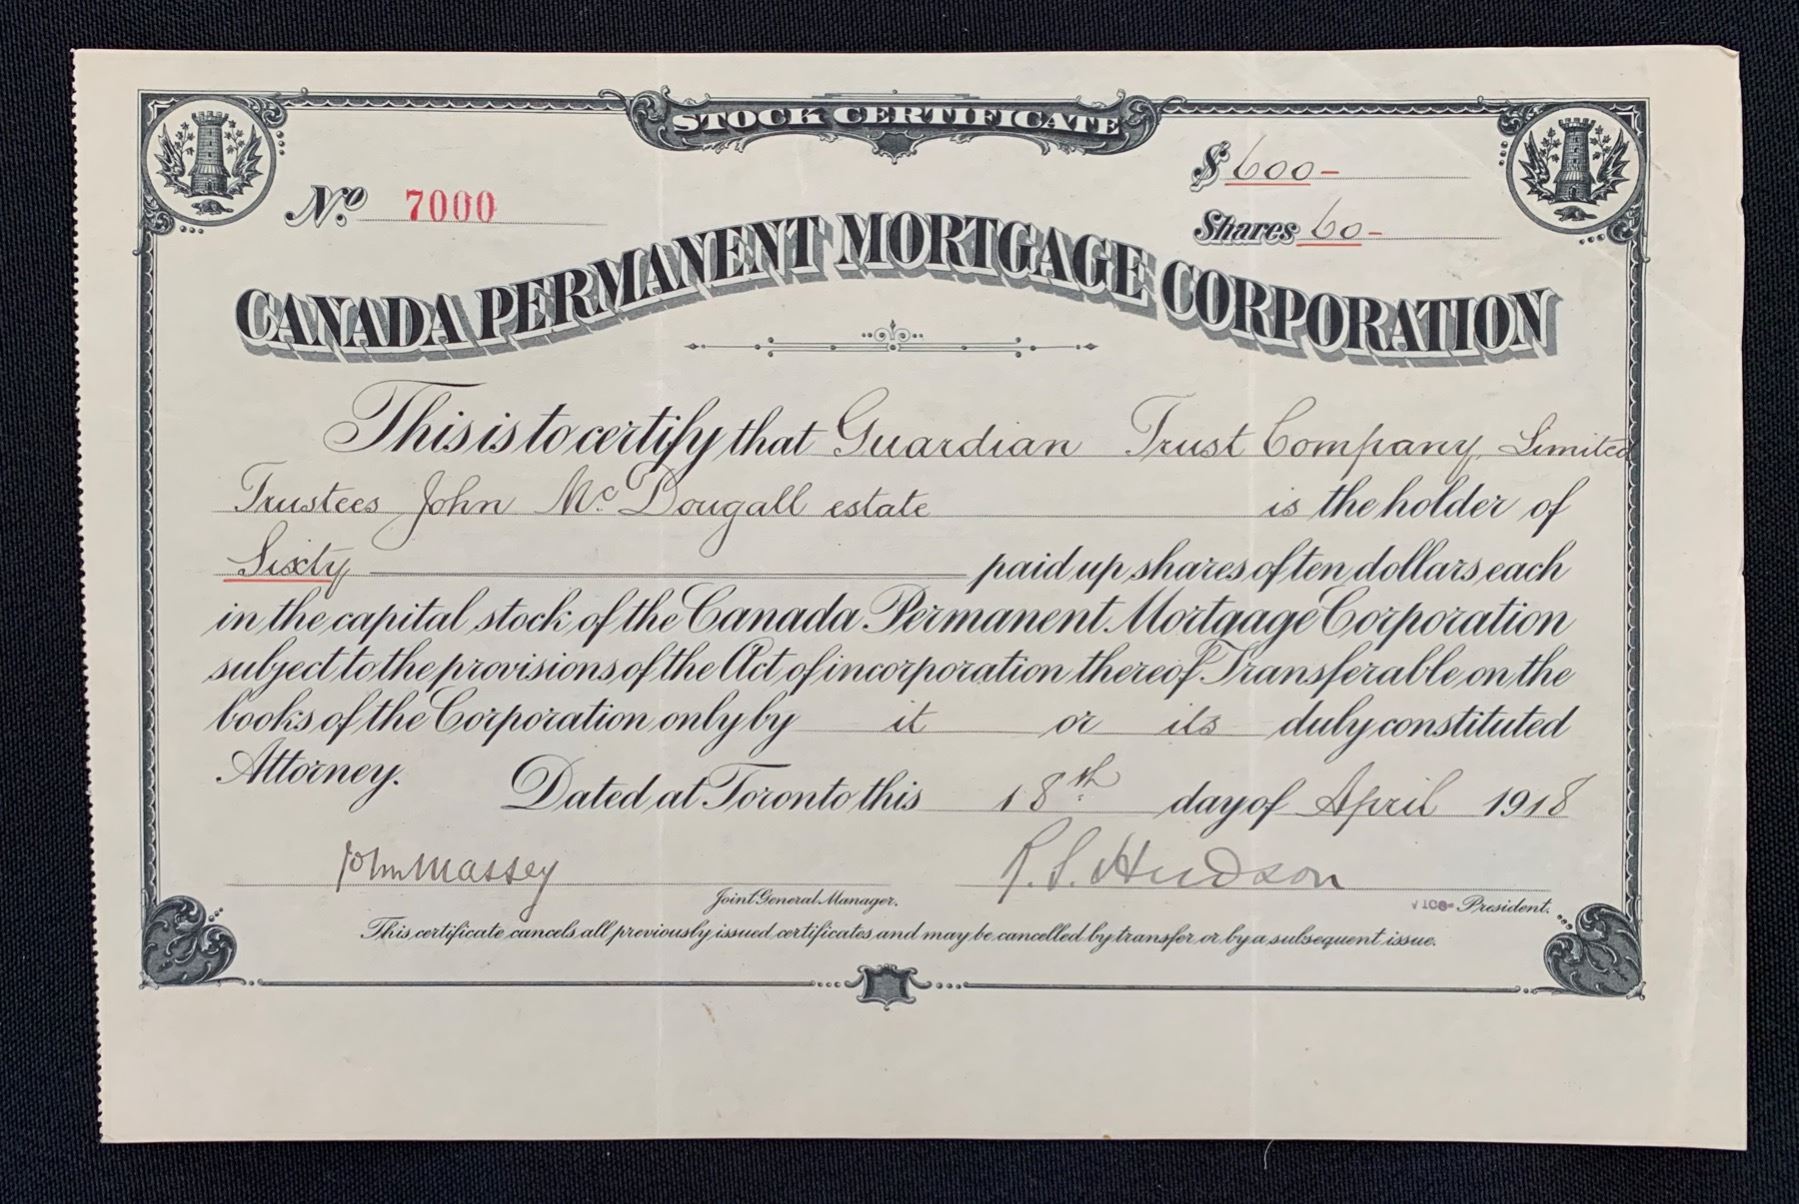 STOCK CERTIFICATE
$ 600-
No. 7000
Shares 60-
CANADA PERMANENT MORTGAGE CORPORATION
This is to certify that Guardian Trust Company, Limited
Trustees John McDougall estate is the holder of
Sixty paid up shares of ten dollars each
in the capital stock of the Canada Permanent Mortgage Corporation
subject to the provisions of the Act of incorporation thereof. Transferable on the
books of the Corporation only by it or its duly constituted
Attorney.
Dated at Toronto this 18th day of April 1918
John Massey
R. S. Hudson
Joint General Manager.
VICE- President.
This certificate cancels all previously issued certificates and may be cancelled by transfer or by a subsequent issue.